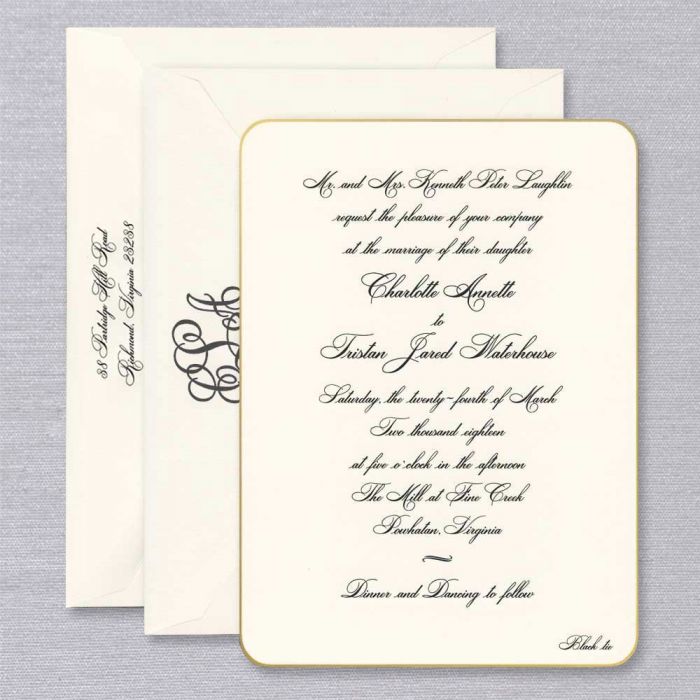 Mr. and Mrs. Kenneth Peter Laughlin
request the pleasure of your company
at the marriage of their daughter
Charlotte Annette
to
Tristan Jared Waterhouse
Saturday, the twenty-fourth of March
Two thousand eighteen
at five o'clock in the afternoon
The Mill at Fine Creek
Powhatan, Virginia
Dinner and Dancing to follow
Black tie
38 Partridge Hill Road
Richmond, Virginia 23238